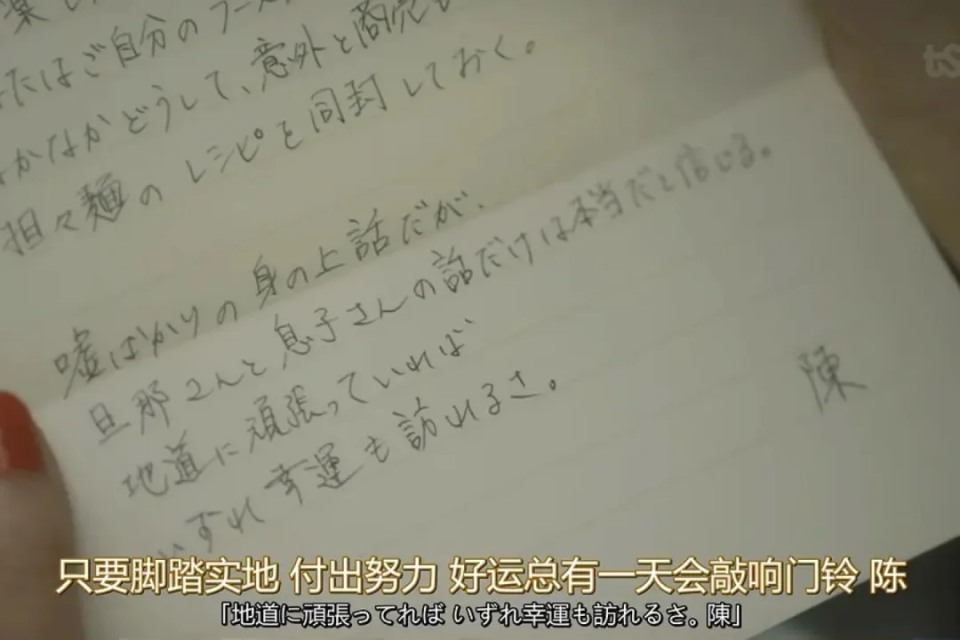 たはご自分のフース
かなかどうして、意外と商売
担々麺のレシピを同封しておく。
嘘ばかりの身の上話だが、
旦那さんと息子さんの話だけは本当だと信じる。
地道に頑張っていれば
いずれ幸運も訪れるさ。
陳
只要脚踏实地 付出努力 好运总有一天会敲响门铃 陈
「地道に頑張ってれば いずれ幸運も訪れるさ。陳」